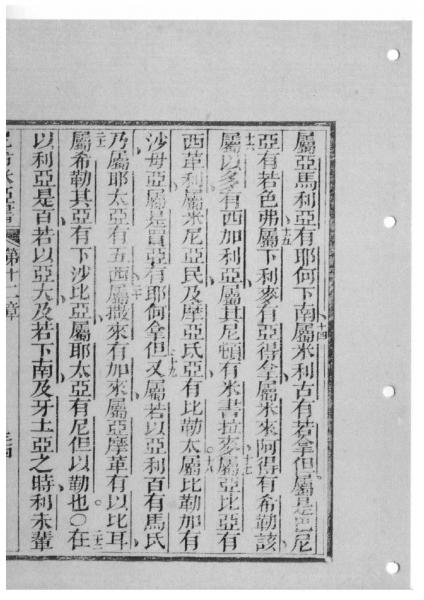 屬亞馬利亞有耶何下南屬米利古有若拿但屬是巴尼
亞有若色弗屬下利麥有亞得拿屬米來阿得有希勒該
屬以多有西加利亞屬其尼頓有米書拉麥屬亞比亞有
西革利屬米尼亞民及摩亞氐亞有比勒太屬比勒加有
沙毋亞屬是買亞有耶何拿但又屬若以亞利百有馬氐
乃屬耶太亞有五西屬撒來有加來屬亞摩革有以比耳
屬希勒其亞有下沙比亞屬耶太亞有尼但以勒也〇在
以利亞是百若以亞大及若下南及牙土亞之時利未輩
第十二章